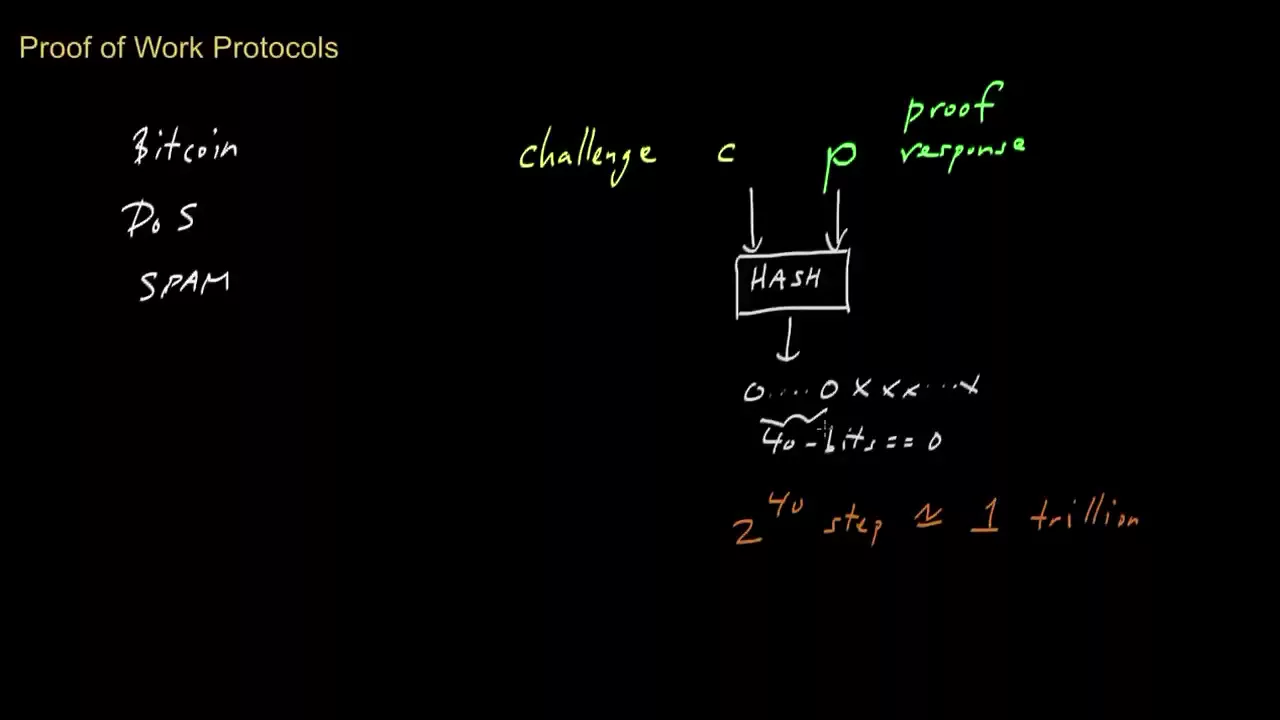 Proof of Work Protocols
Bitcoin
DoS
SPAM
challenge c p proof
response
HASH
0....0 x x x...x
40-bits == 0
2^40 step ≈ 1 trillion